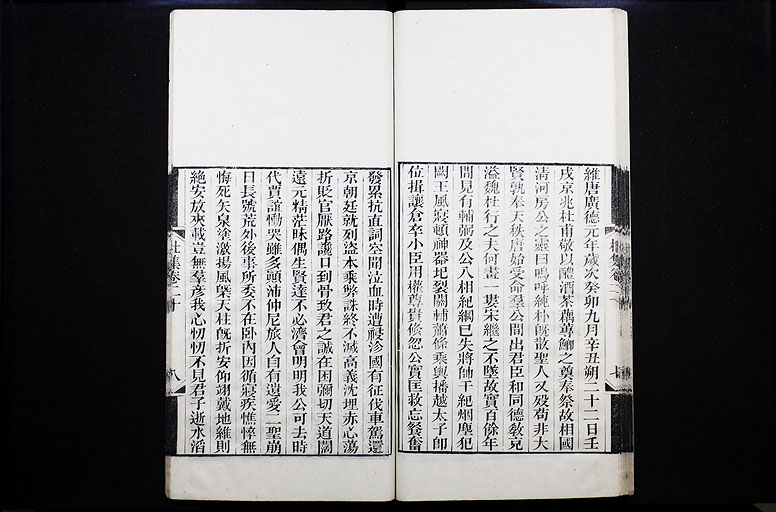 維唐廣德元年歲次癸卯九月辛丑朔二十二日壬
戌京兆杜甫敬以醴酒茶藕蓴鯽之奠奉祭故相國
清河房公之靈曰嗚呼純朴旣散聖人又歿苟非大
賢孰奉天秩唐始受命羣公間出君臣和同德敎充
溢魏杜行之夫何畫一婁宋繼之不墜故實百餘年
間見有輔弼及公入相紀綱已失將帥干紀烟塵犯
闕王風寢頓神器圮裂關輔蕭條乘輿播越太子卽
位揖讓倉卒小臣用權尊貴倏忽公實匡救忘餐奮
杜集卷二十
七
發累抗直詞空聞泣血時遭祲沴國有征伐車駕還
京朝廷就列盜本乘弊誅終不滅高義沈埋赤心蕩
折貶官厭路讒口到骨致君之誠在困彌切天道闊
遠元精茫昧偶生賢達不必濟會明明我公可去時
代賈誼慟哭雖多顚沛仲尼旅人自有遺愛二聖崩
日長號荒外後事所委不在臥內因循寢疾憔悴無
悔死矢泉塗激揚風槩天柱旣折安仰翊戴地維則
絶安放夾載豈無羣彥我心忉忉不見君子逝水滔
杜集卷二十
八